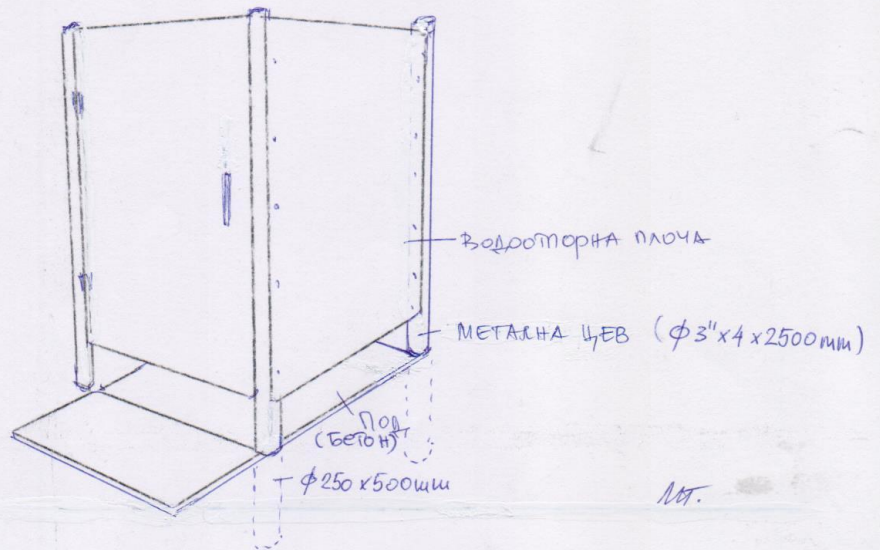 ВОДООТПОРНА ПЛОЧА
МЕТАЛНА ЦЕВ (φ3"x4x2500mm)
ПОД
(БЕТОН)
φ250x500mm
МТ.